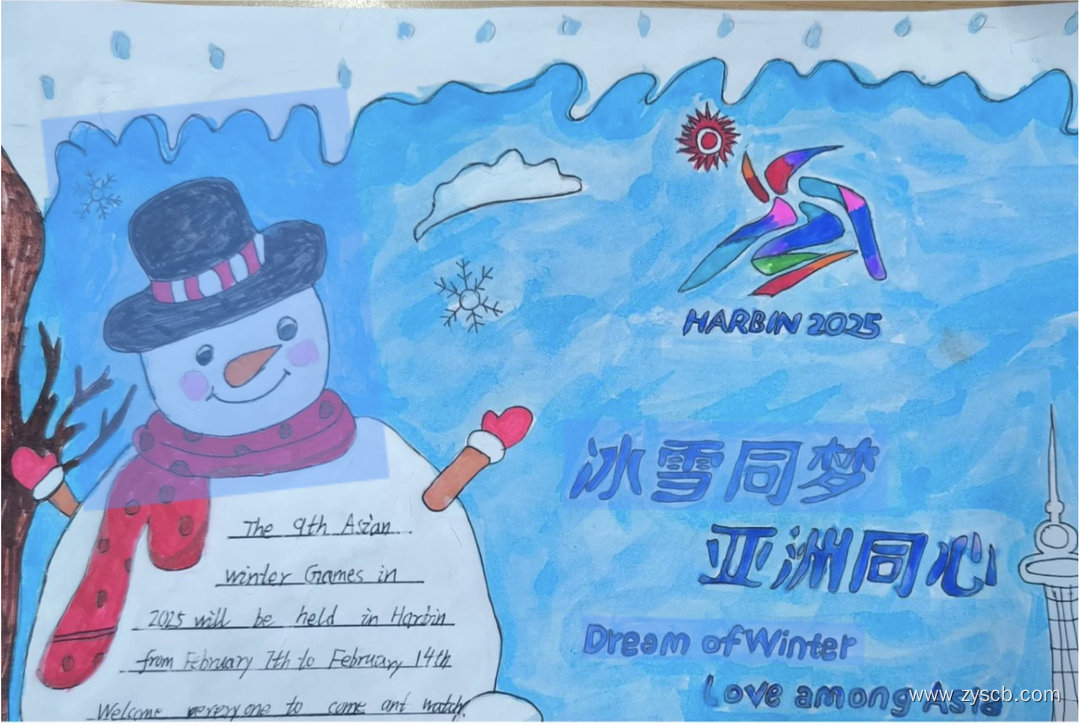 HARBIN 2025
冰雪同梦
亚洲同心
Dream of Winter
Love among Asia
The 9th Asian
winter Games in
2025 will be held in Harbin
from February 7th to February 14th
Welcome everyone to come ant watch.
www.zyscb.com